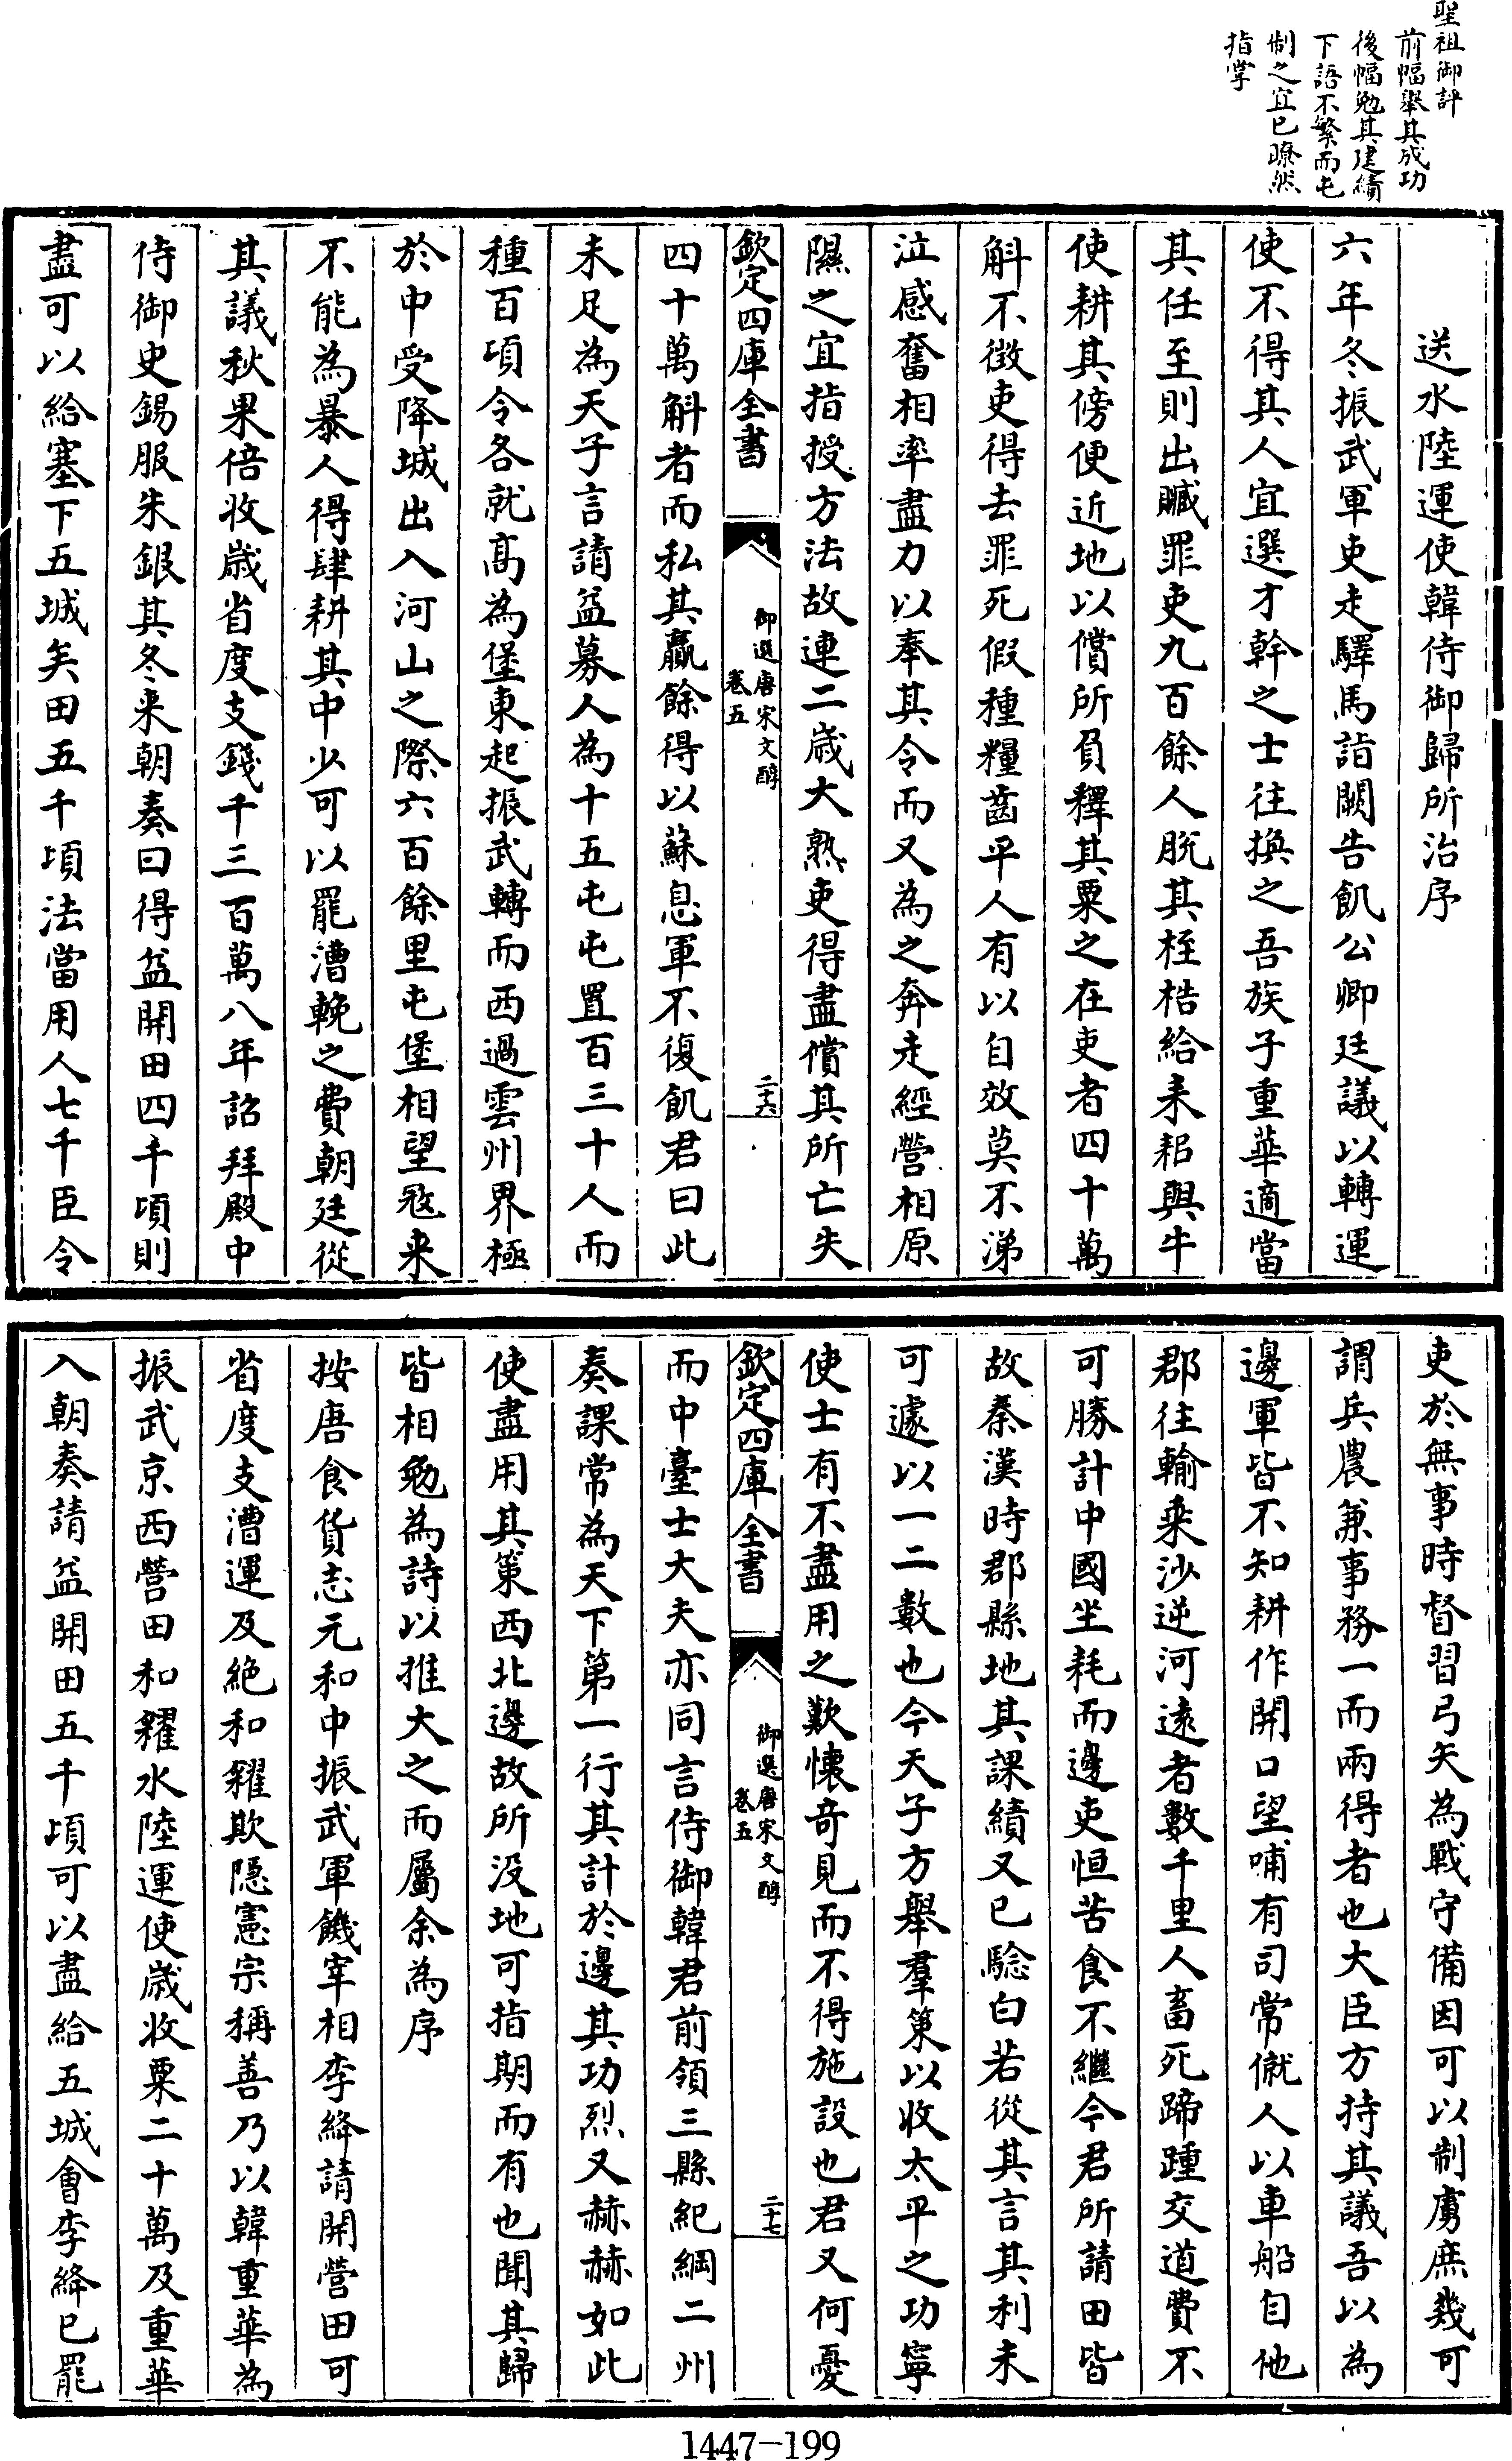 聖祖御評
前幅舉其成功
後幅勉其建績
下語不繁而屯
制之宜已瞭然
指掌
送水陸運使韓侍御歸所治序
六年冬振武軍吏走驛馬詣闕告飢公卿廷議以轉運
使不得其人宜選才幹之士往換之吾族子重華適當
其任至則出贓罪吏九百餘人脫其桎梏給耒耜與牛
使耕其傍便近地以償所負釋其粟之在吏者四十萬
斛不徵吏得去罪死假種糧齒平人有以自效莫不涕
泣感奮相率盡力以奉其令而又為之奔走經營相原
隰之宜指授方法故連二歲大熟吏得盡償其所亡失
欽定四庫全書
御選唐宋文醇
卷五
二十六
四十萬斛者而私其贏餘得以蘇息軍不復飢君曰此
未足為天子言請益募人為十五屯屯置百三十人而
種百頃令各就高為堡東起振武轉而西過雲州界極
於中受降城出入河山之際六百餘里屯堡相望寇來
不能為暴人得肆耕其中少可以罷漕輓之費朝廷從
其議秋果倍收歲省度支錢千三百萬八年詔拜殿中
侍御史錫服朱銀其冬来朝奏曰得益開田四千頃則
盡可以給塞下五城矣田五千頃法當用人七千臣令
吏於無事時督習弓矢為戰守備因可以制虜庶幾可
謂兵農兼事務一而兩得者也大臣方持其議吾以為
邊軍皆不知耕作開口望哺有司常僦人以車船自他
郡往輸乘沙逆河遠者數千里人畜死蹄踵交道費不
可勝計中國坐耗而邊吏恒苦食不繼今君所請田皆
故秦漢時郡縣地其課績又已驗白若從其言其利未
可遽以一二數也今天子方舉羣策以收太平之功寧
使士有不盡用之歎懷奇見而不得施設也君又何憂
欽定四庫全書
御選唐宋文醇
卷五
二十七
而中臺士大夫亦同言侍御韓君前領三縣紀綱二州
奏課常為天下第一行其計於邊其功烈又赫赫如此
使盡用其策西北邊故所没地可指期而有也聞其歸
皆相勉為詩以推大之而屬余為序
按唐食貨志元和中振武軍饑宰相李絳請開營田可
省度支漕運及絕和糴欺隱憲宗稱善乃以韓重華為
振武京西營田和糴水陸運使歲收粟二十萬及重華
入朝奏請益開田五千頃可以盡給五城會李絳已罷
1447-199